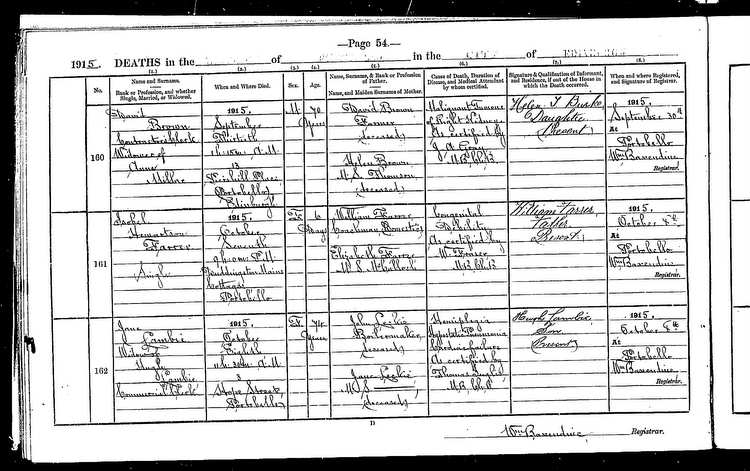 —Page 54.—
1915. DEATHS in the of in the CITY of EDINBURGH
(1.) (2.) (3.) (4.) (5.) (6.) (7.) (8.)
No.
Name and Surname.
Rank or Profession, and whether Single, Married, or Widowed.
When and Where Died.
Sex.
Age.
Name, Surname, & Rank or Profession of Father.
Name, and Maiden Surname of Mother.
Cause of Death, Duration of Disease, and Medical Attendant by whom certified.
Signature & Qualification of Informant, and Residence, if out of the House in which the Death occurred.
When and where Registered, and Signature of Registrar.
160
David
Brown
Contractor's Clerk
Widower of
Anne
Millar
1915.
September
Thirtieth
A.M.
Portobello
Edinburgh
M.
70
Years
David Brown
Farmer
(deceased)
Helen Brown
M.S. Thomson
(deceased)
Malignant Tumour
of Right Kidney
As certified by
J. A. Gray
M.B. Ch.B.
Helen T. Burke
Daughter
(Present)
1915.
September 30th
At
Portobello
Wm Baxendine
Registrar.
161
Isobel
Farrer
Single
1915.
October
Seventh
P.M.
Duddingston Mains
Cottages
Portobello
F.
6
Days
William Farrer
Coachman (Domestic)
Elizabeth Farrer
M.S. McCulloch
Congenital
Debility
As certified by
W. Fraser
M.B. Ch.B.
William Farrer
Father
(Present)
1915.
October 8th
At
Portobello
Wm Baxendine
Registrar.
162
Jane
Lambie
Widow of
Hugh
Lambie
Commercial Clerk
1915.
October
Eighth
A.M.
Hope Street
Portobello
F.
74
Years
John Leslie
Boilermaker
(deceased)
Jane Leslie
M.S.
(deceased)
Hemiplegia
Hypostatic Pneumonia
Cardiac failure
As certified by
Thomas
M.B. Ch.B.
Hugh Lambie
Son
(Present)
1915.
October 8th
At
Portobello
Wm Baxendine
Registrar.
Wm Baxendine Registrar.